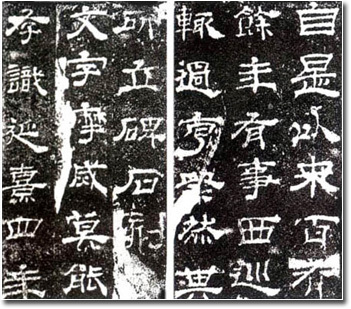 自是以來百有
餘年有事西巡
輒過享祭然其
所立碑石刻
文字摩烕莫能
存識延熹四年